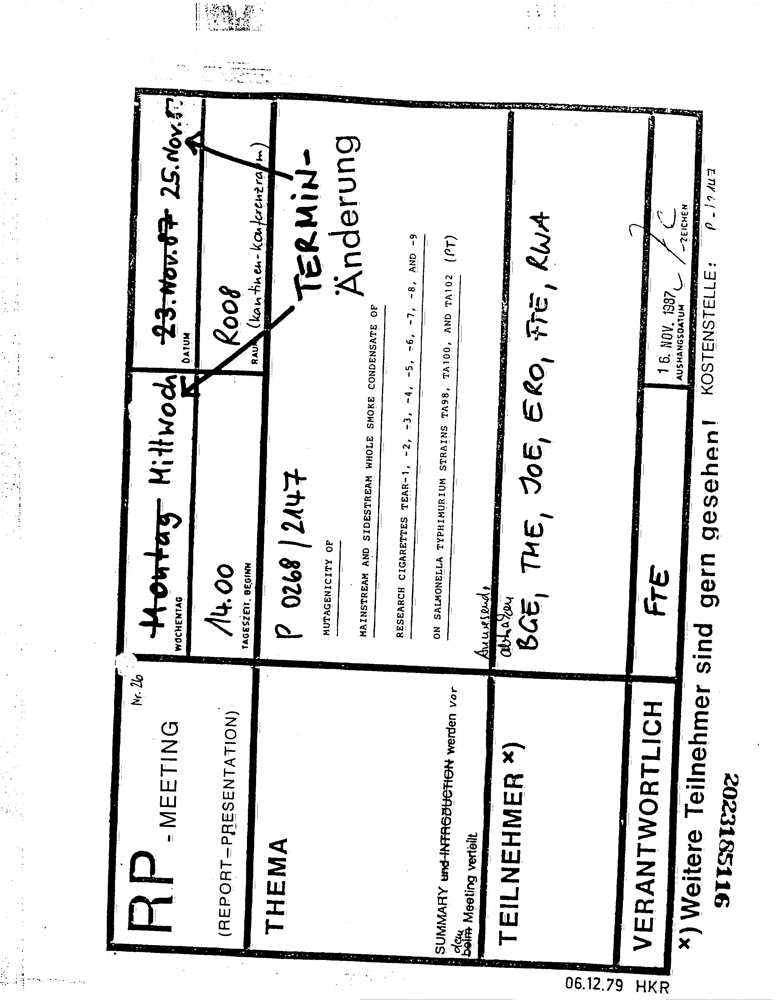 RP - MEETING Nr. 26
(REPORT-PRESENTATION)
Montag Mittwoch
WOCHENTAG
23. Nov. 87 25. Nov. 87
DATUM
14.00
TAGESZEIT, BEGINN
R008
RAUM (Kantinen-Konferenzraum)
TERMIN-
Änderung
THEMA
P 0268/2147
MUTAGENICITY OF
MAINSTREAM AND SIDESTREAM WHOLE SMOKE CONDENSATE OF
RESEARCH CIGARETTES TEAR-1, -2, -3, -4, -5, -6, -7, -8, AND -9
ON SALMONELLA TYPHIMURIUM STRAINS TA98, TA100, AND TA102 (PT)
SUMMARY und INTRODUCTION werden vor
dem
beim Meeting verteilt
TEILNEHMER *)
BGE, THE, JOE, ERO, FTE, RWA
VERANTWORTLICH
FTE
16. NOV. 1987
AUSHANGSDATUM
-ZEICHEN
*) Weitere Teilnehmer sind gern gesehen! KOSTENSTELLE:
2023185116
06.12.79 HKR